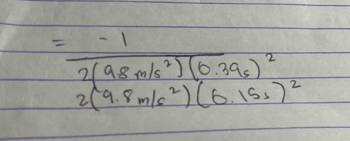 = -1
2(9.8 m/s²)(0.39s)²
2(9.8 m/s²)(6.15s)²